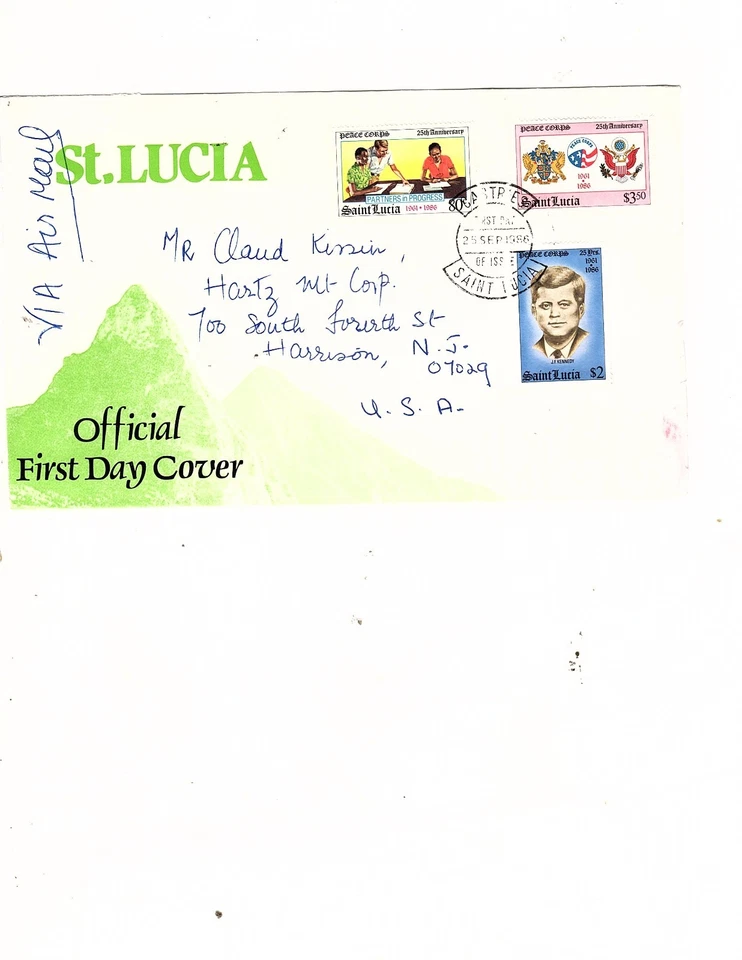 VIA Air Mail
St. LUCIA
PEACE CORPS 25th Anniversary
PARTNERS in PROGRESS
Saint Lucia 1961 • 1986 80c
PEACE CORPS 25th Anniversary
PEACE CORPS
1961 • 1986
Saint Lucia $3.50
CASTRIES
FIRST DAY
25 SEP 1986
OF ISSUE
SAINT LUCIA
PEACE CORPS 25 Yrs.
1961 • 1986
J.F. KENNEDY
Saint Lucia $2
MR Claud Kissin,
Hartz Mt Corp.
700 South Forerth St
Harrison, N.J.
07029
U.S.A.
Official
First Day Cover